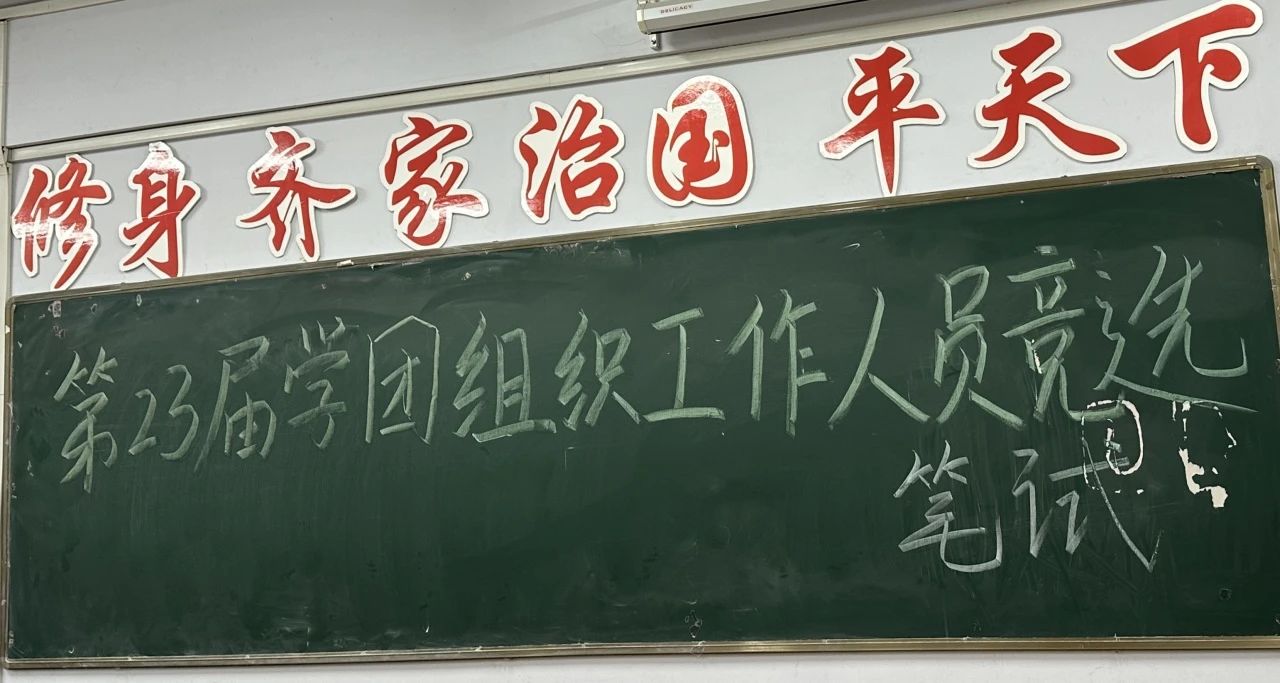 DELICACY
修身 齐家 治国 平天下
第23届学团组织工作人员竞选
笔试